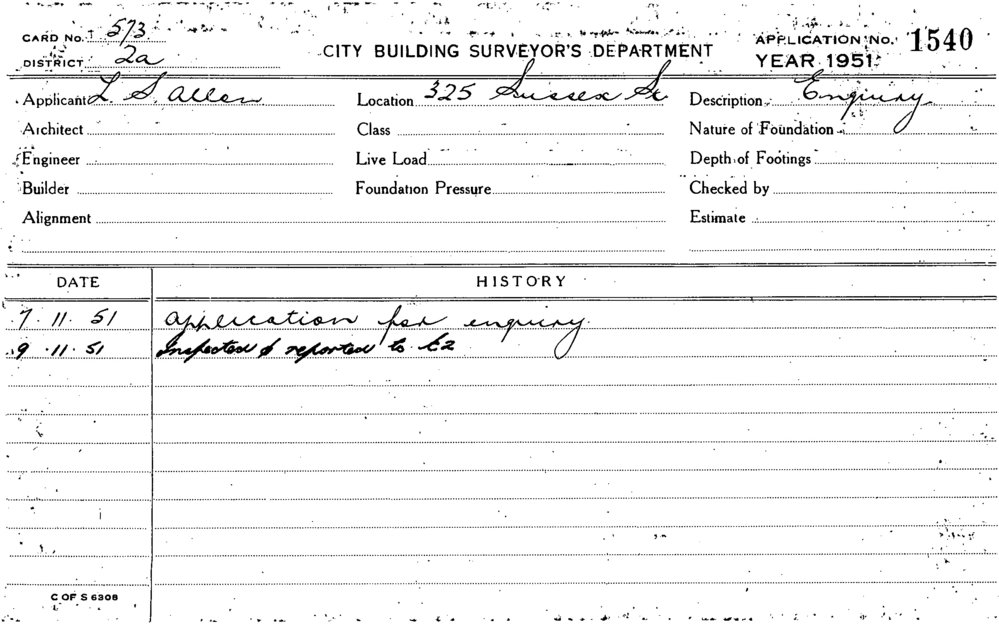 CARD No. 573
DISTRICT 2a
CITY BUILDING SURVEYOR'S DEPARTMENT
APPLICATION No. 1540
YEAR 1951
Applicant L. S. Allen
Location 325 Sussex St
Description Enquiry
Architect
Class
Nature of Foundation
Engineer
Live Load
Depth of Footings
Builder
Foundation Pressure
Checked by
Alignment
Estimate
DATE
HISTORY
7.11.51 application for enquiry
9.11.51 Inspected & reported to
C OF S 6308